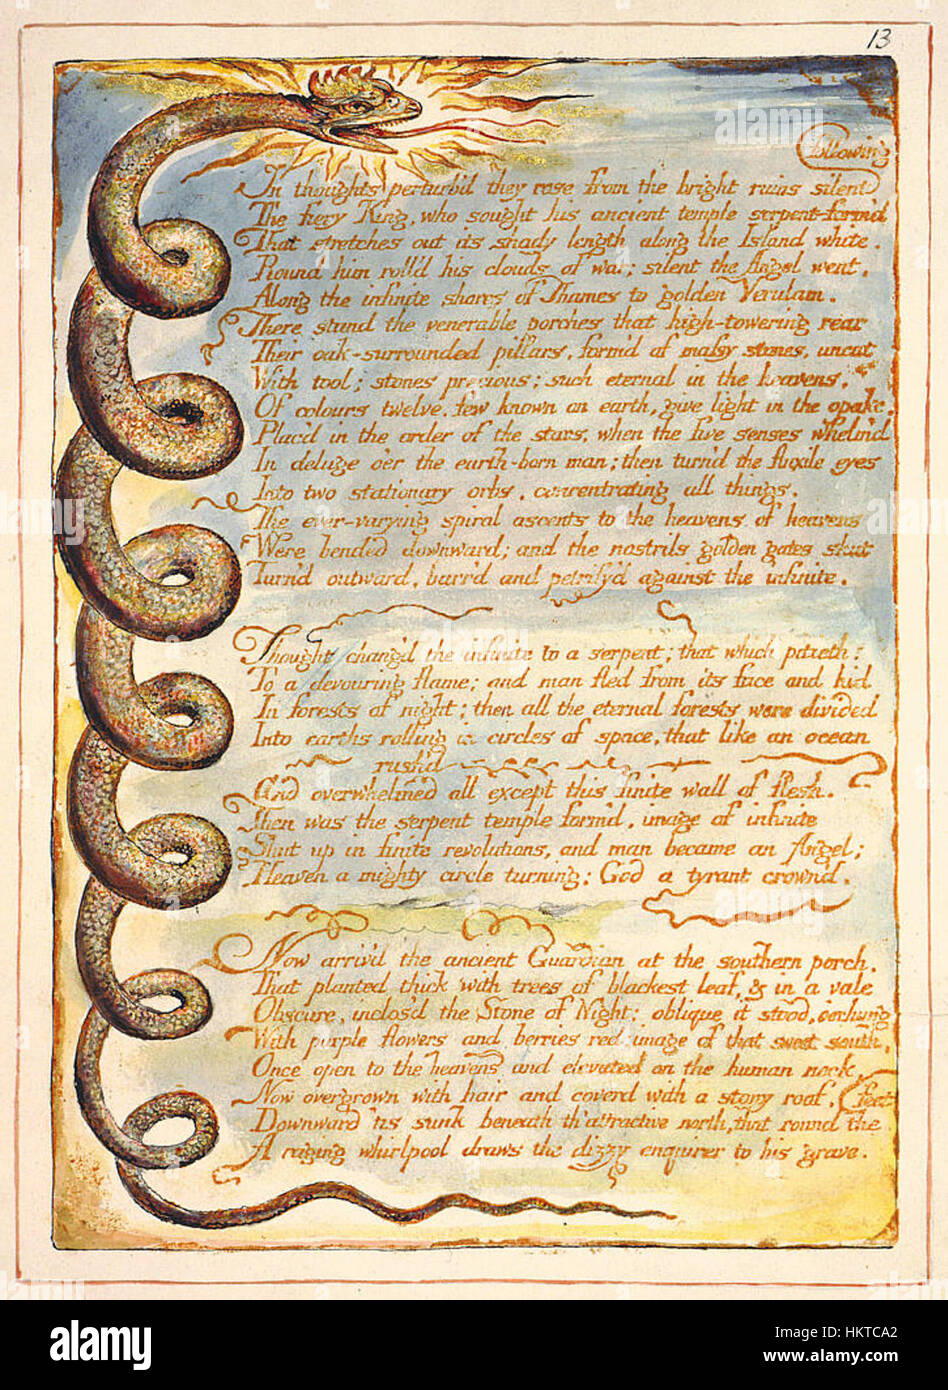 13
following
In thoughts perturb'd they rose from the bright ruins silent
The fiery King, who sought his ancient temple serpent-form'd
That stretches out its shady length along the Island white.
Round him roll'd his clouds of war; silent the Angel went,
Along the infinite shores of Thames to golden Verulam.
There stand the venerable porches that high-towering rear
Their oak-surrounded pillars, form'd of massy stones, uncut
With tool; stones precious; such eternal in the heavens,
Of colours twelve, few known on earth, give light in the opake,
Plac'd in the order of the stars, when the five senses whelm'd
In deluge o'er the earth-born man; then turn'd the fluxile eyes
Into two stationary orbs, concentrating all things.
The ever-varying spiral ascents to the heavens of heavens
Were bended downward; and the nostrils golden gates shut
Turn'd outward, barr'd and petrify'd against the infinite.
Thought chang'd the infinite to a serpent; that which pitieth:
To a devouring flame; and man fled from its face and hid
In forests of night; then all the eternal forests were divided
Into earths rolling in circles of space, that like an ocean
rush'd
And overwhelmed all except this finite wall of flesh.
Then was the serpent temple form'd, image of infinite
Shut up in finite revolutions, and man became an Angel;
Heaven a mighty circle turning; God a tyrant crown'd.
Now arriv'd the ancient Guardian at the southern porch,
That planted thick with trees of blackest leaf, & in a vale
Obscure, inclos'd the Stone of Night; oblique it stood, o'erhung
With purple flowers and berries red; image of that sweet south,
Once open to the heavens and elevated on the human neck,
Now overgrown with hair and cover'd with a stony roof,
feet
Downward 'tis sunk beneath th' attractive north, that round the
A raging whirlpool draws the dizzy enquirer to his grave.
alamy
Image ID: HKTCA2
www.alamy.com